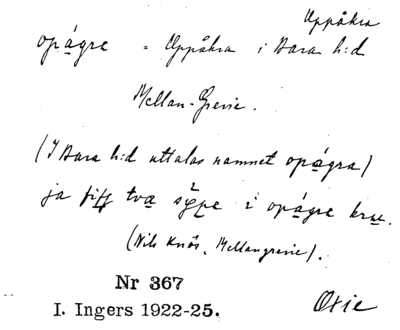 Uppåkra
opågre = Uppåkra i Bara h:d
Mellan-Grevie.
(I Bara h:d uttalas namnet opågra)
ja fikk två i opågre krue.
(Nils Knös, Mellangrevie).
Nr 367
I. Ingers 1922-25.
Oxie